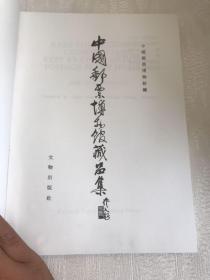 中国邮票博物馆编
中國郵票博物馆藏品集
文物出版社